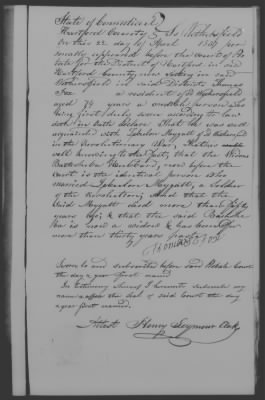 State of Connecticut
Hartford County } ss. Wethersfield
On this 22 day of April 1839 per
sonally appeared before the court of Pro
bate for the District of Hartford in said
Hartford County now sitting in said
Wethersfield in said District Thomas
Fox a resident of sd Wethersfield
aged 74 years a credible person who
being first duly sworn according to law
doth on oath declare that he was well
acquainted with Zebulon Mygatt of sd Wethersfield
in the Revolutionary War, that he is
well knowing to the fact, that the Widow
Bathsheba now before the
court is the identical person who
married Zebulon Mygatt, a Soldier
of the Revolution, and that the
said Mygatt died more than fifty
years ago; & that the said Bathshe
ba is now a widow & has been for
more than thirty years past
Thomas Fox
Sworn to and subscribed before said Probate Court
the day & year first named
In testimony whereof I hereunto subscribe my
name & affix the seal of said Court the day
& year first named.
Attest Henry Seymour Clerk